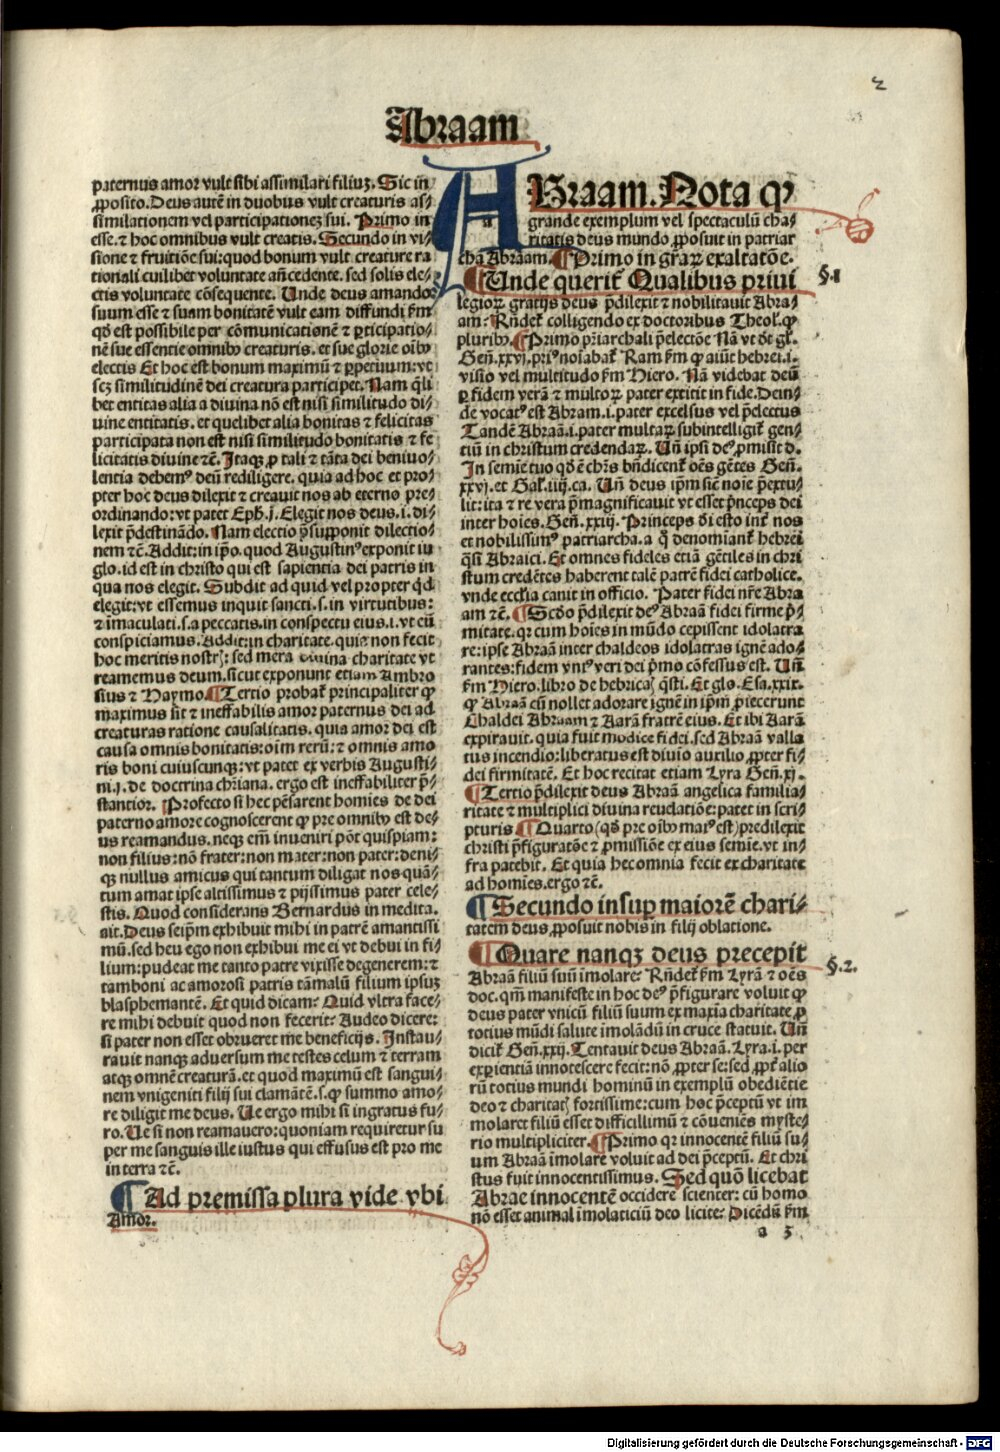 2
Abraam
paternus amor vult sibi assimilari filiuꝫ. Sic in
ꝓposito. Deus autē in duobus vult creaturis as⸗
similationem vel participationeꝫ sui. Primo in
esse. ⁊ hoc omnibus vult creatis. Secundo in vi⸗
sione ⁊ fruitiōe sui: quod bonum vult creature ra
tionali cuilibet voluntate añcedente. sed solis ele⸗
ctis voluntate cōsequente. Unde deus amando
suum esse ⁊ suam bonitatē vult eam diffundi s̄m
qd̄ est possibile per cōmunicationē ⁊ ꝑticipatio⸗
nē sue essentie omnibꝰ creaturis. et sue glorie oībꝰ
electis Et hoc est bonum maximū ⁊ ꝑpetuum: vt
scꝫ similitudinē dei creatura participet. Nam q̄li
bet entitas alia a divina nō est nisi similitudo di⸗
uine entitatis. et quelibet alia bonitas ⁊ felicitas
participata non est nisi similitudo bonitatis ⁊ fe
licitatis divine ⁊c̄. Itaqꝫ ꝓ tali ⁊ tāta dei beniuo⸗
lentia debemꝰ deū rediligere. quia ad hoc et pro⸗
pter hoc deus dilexit ⁊ creauit nos ab eterno pre⸗
ordinando: vt patet Eph̄. j. Elegit nos deus. i. di⸗
lexit p̄destināndo. Nam electio p̄supponit dilectio⸗
nem ⁊c̄. Addit: in ip̄o. quod Augustinꝰ exponit in
glo. id est in christo qui est sapientia dei patris in
qua nos elegit. Subdit ad quid vel propter qd̄
elegit: vt essemus inquit sancti. s. in virtutibus:
⁊ īmaculati. s. a peccatis. in conspectu eius. i. vt eū
conspiciamus. Addit: in charitate. quia non fecit
hoc meritis nostrꝭ: sed mera divina charitate vt
reamemus deum. sicut exponunt etiam Ambro
sius ⁊ Haymo. ¶ Tertio probat̄ principaliter ꝙ
maximus sit ⁊ ineffabilis amor paternus dei ad
creaturas ratione causalitatis. quia amor dei est
causa omnis bonitatis: oīm rerū: ⁊ omnis amo
ris boni cuiuscunqꝫ: vt patet ex verbis Augusti⸗
ni. j. de doctrina chr̄iana. ergo est ineffabiliter p̄⸗
stantior. Profecto si hec pēsarent homīes de dei
paterno amore cognoscerent ꝙ pre omnibꝰ est de⸗
us reamandus. neqꝫ em̄ inueniri pōt quispiam:
non filius: nō frater: non mater: non pater: deni⸗
qꝫ nullus amicus qui tantum diligat nos quā⸗
tum amat ipse altissimus ⁊ pijssimus pater cele⸗
stis. Quod considerans Bernardus in medita.
ait. Deus seip̄m exhibuit mihi in patrē amantissi
mū. sed heu ego non exhibui me ei vt debui in fi⸗
lium: pudeat me tanto patre vixisse degenerem: ⁊
tamboni ac amorosi patris tāmalū filium ipsuꝫ
blasphemantē. Et quid dicam? Quid vltra face⸗
re mihi debuit quod non fecerit? Audeo dicere:
si pater non esset obrueret me beneficijs. Instau⸗
rauit nanqꝫ aduersum me testes celum ⁊ terram
atqꝫ omnē creaturā. et quod maximū est sangui⸗
nem vnigeniti filij sui clamātē. s. ꝙ summo amo⸗
re diligit me deus. Ue ergo mihi si ingratus fu⸗
ro. Ue si non reamauero: quoniam requiretur su
per me sanguis ille iustus qui effusus est pro me
in terra ⁊c̄.
¶ Ad premissa plura vide vbi
Amor.
ABraam. Nota ꝙ
grande exemplum vel spectaculū cha⸗
ritatis deus mundo ꝓposuit in patriar
cha Abraam. ¶ Primo in gr̄aꝝ exaltatōe.
¶ Unde querit̄ Qualibus priui §. 1
legioꝝ gratijs deus p̄dilexit ⁊ nobilitauit Abra⸗
am? Rn̄det̄ colligendo ex doctoribus Theol. ꝙ
pluribꝰ. ¶ Primo pr̄iarchali p̄electōe Nā vt dr̄ gl̄.
Geñ. xxvj. priꝰ noīabat̄ Ram s̄m ꝙ aiūt hebrei. i.
visio vel multitudo s̄m Hiero. Nā videbat deū
ꝑ fidem verā ⁊ multoꝝ pater extitit in fide. Dein⸗
de vocatꝰ est Abram. i. pater excelsus vel p̄electus
Tandē Abraā. i. pater multaꝝ subintelligit̄ gen⸗
tiū in christum credendaꝝ. Uñ ipsi deꝰ ꝓmisit d.
In semīe tuo qd̄ ē chr̄s bn̄dicent̄ oēs gētes Geñ.
xxvj. et Gal̄. iiij. ca. Uñ deus ip̄m sic̄ noīe p̄extu⸗
lit: ita ⁊ re vera p̄magnificauit vt esset p̄nceps dei
inter hoīes. Geñ. xxiij. Princeps d̄i esto int̄ nos
et nobilissimꝰ patriarcha. a q̄ denomīant̄ hebrei
q̄si Abraici. Et omnes fideles etiā gētiles in chri
stum credētes haberent talē patrē fidei catholice.
vnde eccl̄ia canit in officio. Pater fidei nr̄e Abra
am ⁊c̄. ¶ Scd̄o p̄dilexit deꝰ Abraā fidei firme p̄⸗
mitate. qꝛ cum hoīes in mūdo cepissent idolatra
re: ipse Abraā inter chaldeos idolatras ignē ado⸗
rantes: fidem vniꝰ veri dei p̄mo cōfessus est. Uñ
s̄m Hiero. libro de hebricaꝭ q̄sti. Et glo. Esa. xxix.
ꝙ Abraā cū nollet adorare ignē in ip̄m ꝓiecerunt
Chaldei Abraam ⁊ Aarā fratrē eius. Et ibi Aarā
expirauit. quia fuit modice fidei. sed Abraā valla
tus incendio: liberatus est diuio auxilio ꝓpter fi⸗
dei firmitatē. Et hoc recitat etiam Lyra Geñ. xj.
¶ Tertio p̄dilexit deus Abraā angelica familia⸗
ritate ⁊ multiplici diuina reuelatiōe: patet in scri⸗
pturis ¶ Quarto (qd̄ pre oībꝰ maiꝰ est) predilexit
christi p̄figuratōe ⁊ ꝓmissiōe ex eius semīe. vt in⸗
fra patebit. Et quia hec omnia fecit ex charitate
ad homīes. ergo ⁊c̄.
¶ Secundo insuꝑ maiorē chari⸗
tatem deus ꝓposuit nobis in filij oblatione.
¶ Quare nanqꝫ deus precepit §. 2.
Abraā filiū suū īmolare? Rn̄det̄ s̄m Lyrā ⁊ oēs
doc. qm̄ manifeste in hoc deꝰ p̄figurare voluit ꝙ
deus pater vnicū filiū suum ex maxīa charitate ꝓ
totius mūdi salute imolādū in cruce statuit. Uñ
dicit̄ Geñ. xxij. Tentauit deus Abraā. Lyra. i. per
exꝑientiā innotescere fecit: nō ꝓpter se: sed ꝓpt̄ alio
rū totius mundi hominū in exemplū obediētie
deo ⁊ charitatꝭ fortissime: cum hoc p̄ceptū vt im
molaret filiū esset difficillimū ⁊ cōueniēs myste⸗
rio multipliciter. ¶ Primo qꝛ innocentē filiū su⸗
um Abraā imolare voluit ad dei p̄ceptū. Et chri
stus fuit innocentissimus. Sed quō licebat
Abrae innocentē occidere scienter: cū homo
nō esset animal imolaticiū deo licite? Dicēdū s̄m
a 3
Digitalisierung gefördert durch die Deutsche Forschungsgemeinschaft - DFG